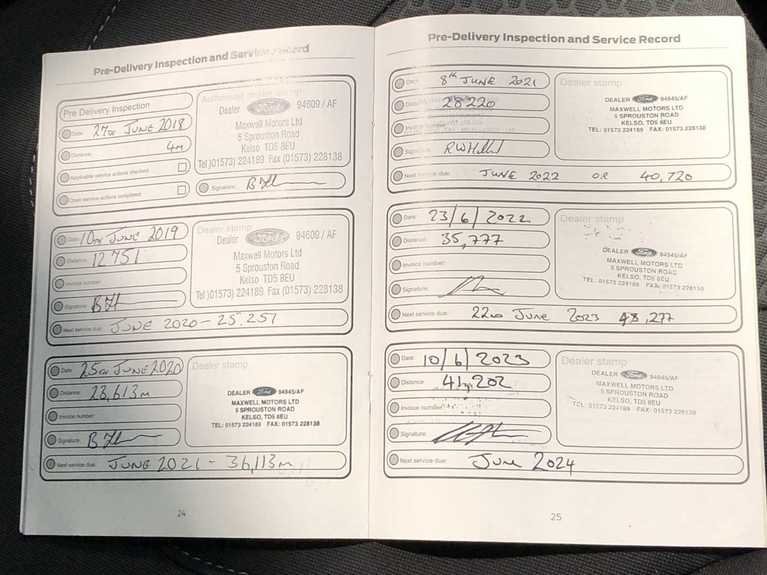 Pre-Delivery Inspection and Service Record
Pre Delivery Inspection
Date: 27TH JUNE 2018
Distance: 4M
Applicable service actions checked
Open service actions completed
Authorised dealer stamp
Dealer Ford 94609 / AF
Maxwell Motors Ltd
5 Sprouston Road
Kelso TD5 8EU
Tel )01573) 224189 Fax (01573) 228138
Signature:
Date: 10TH JUNE 2019
Distance: 12751
Invoice number:
Signature:
Next service due: JUNE 2020 - 25,251
Dealer stamp
Dealer Ford 94609 / AF
Maxwell Motors Ltd
5 Sprouston Road
Kelso TD5 8EU
Tel )01573) 224189 Fax (01573) 228138
Date: 25TH JUNE 2020
Distance: 23,613m
Invoice number:
Signature:
Next service due: JUNE 2021 - 36,113m
Dealer stamp
DEALER Ford 94945/AF
MAXWELL MOTORS LTD
5 SPROUSTON ROAD
KELSO, TD5 8EU
TEL: 01573 224189 FAX: 01573 228138
24
Pre-Delivery Inspection and Service Record
Date: 8TH JUNE 2021
Distance: 28220
Invoice number:
Signature:
Next service due: JUNE 2022 OR 40,720
Dealer stamp
DEALER Ford 94945/AF
MAXWELL MOTORS LTD
5 SPROUSTON ROAD
KELSO, TD5 8EU
TEL: 01573 224189 FAX: 01573 228138
Date: 23/6/2022
Distance: 35,777
Invoice number:
Signature:
Next service due: 22ND JUNE 2023 48,277
Dealer stamp
DEALER Ford 94945/AF
MAXWELL MOTORS LTD
5 SPROUSTON ROAD
KELSO, TD5 8EU
TEL: 01573 224189 FAX: 01573 228138
Date: 10/6/2023
Distance: 41,202
Invoice number:
Signature:
Next service due: June 2024
Dealer stamp
DEALER Ford 94945/AF
MAXWELL MOTORS LTD
5 SPROUSTON ROAD
KELSO, TD5 8EU
TEL: 01573 224189 FAX: 01573 228138
25